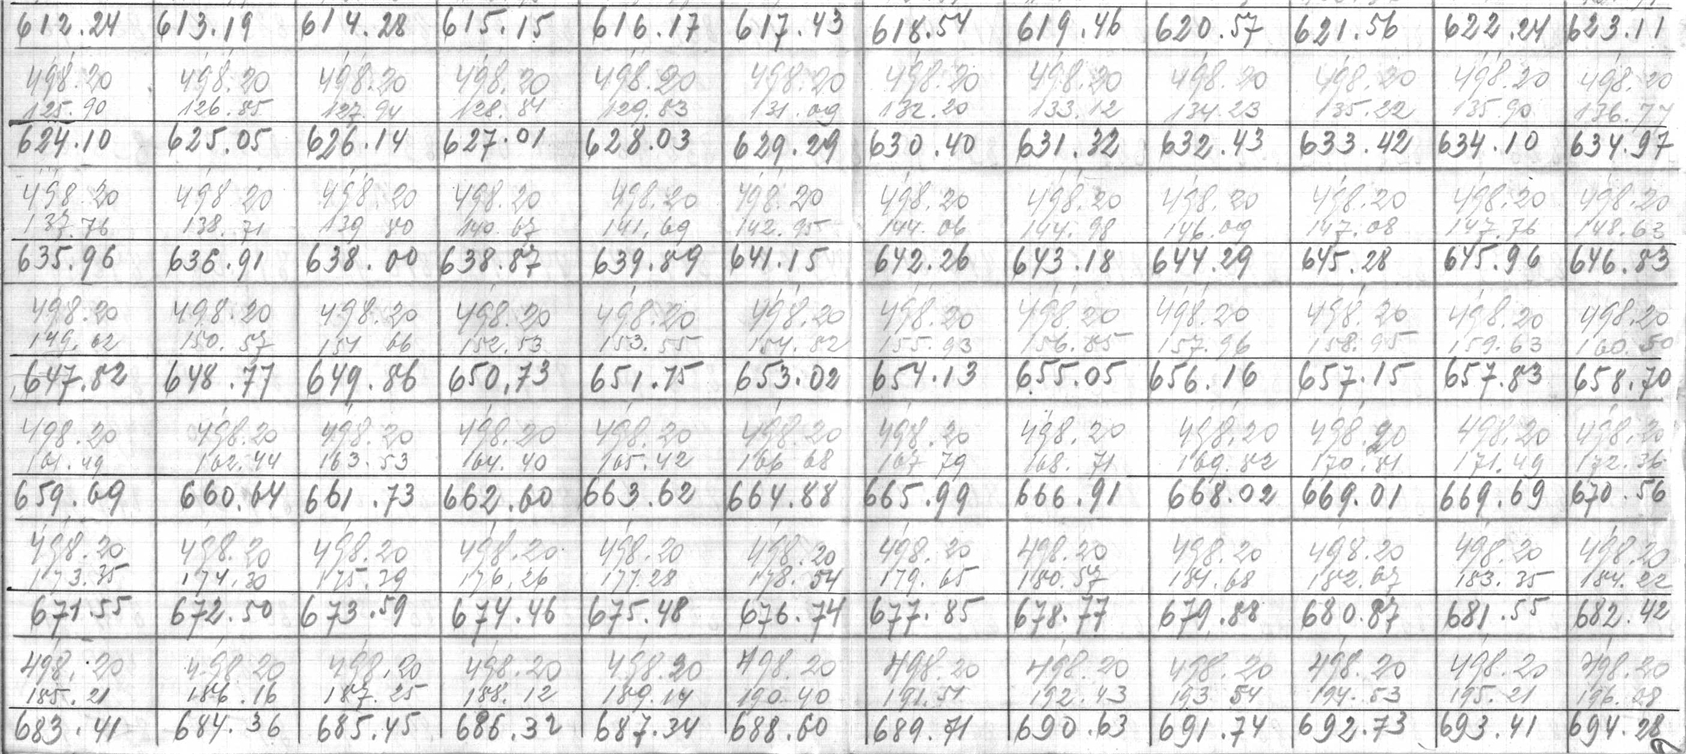 612.24 613.19 614.28 615.15 616.17 617.43 618.54 619.46 620.57 621.56 622.24 623.11
498.20 498.20 498.20 498.20 498.20 498.20 498.20 498.20 498.20 498.20 498.20 498.20
125.90 126.85 127.94 128.81 129.83 131.09 132.20 133.12 134.23 135.22 135.90 136.77
624.10 625.05 626.14 627.01 628.03 629.29 630.40 631.32 632.43 633.42 634.10 634.97
498.20 498.20 498.20 498.20 498.20 498.20 498.20 498.20 498.20 498.20 498.20 498.20
137.76 138.71 139 80 140.67 141,69 142.95 144.06 144.98 146.09 147.08 147.76 148.63
635.96 636.91 638.00 638.87 639.89 641.15 642.26 643.18 644.29 645.28 645.96 646.83
498.20 498.20 498.20 498.20 498.20 498.20 498.20 498.20 498.20 498.20 498.20 498.20
149.62 150.57 151 66 152.53 153.55 154.82 155.93 156.85 157.96 158.95 159.63 160.50
647.82 648.77 649.86 650,73 651.75 653.02 654.13 655.05 656.16 657.15 657.83 658.70
498.20 498.20 498.20 498.20 498.20 498.20 498.20 498.20 498.20 498.20 498.20 498.20
161.49 162.44 163.53 164.40 165.42 166 68 167 79 168.71 169.82 170.81 171.49 172.36
659.69 660.64 661.73 662.60 663.62 664.88 665.99 666.91 668.02 669.01 669.69 670.56
498.20 498.20 498.20 498.20 498.20 498.20 498.20 498.20 498.20 498.20 498.20 498.20
173.35 174.30 175.39 176.26 177.28 178.54 179.65 180.57 181.68 182.67 183.35 184.22
671.55 672.50 673.59 674.46 675.48 676.74 677.85 678.77 679.88 680.87 681.55 682.42
498.20 498.20 498.20 498.20 498.20 498.20 498.20 498.20 498.20 498.20 498.20 498.20
185.21 186.16 187.25 188.12 189.14 190.40 191.51 192.43 193 54 194.53 195.21 196.08
683.41 684.36 685.45 686.32 687.34 688.60 689.71 690.63 691.74 692.73 693.41 694.28